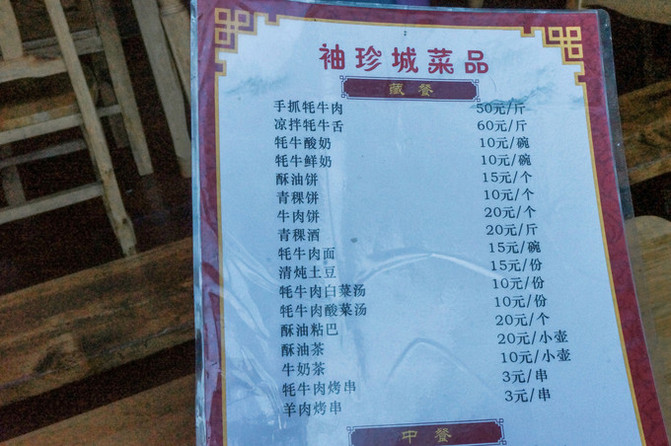 袖珍城菜品
藏餐
手抓牦牛肉 50元/斤
凉拌牦牛舌 60元/斤
牦牛酸奶 10元/碗
牦牛鲜奶 10元/碗
酥油饼 15元/个
青稞饼 10元/个
牛肉饼 20元/个
青稞酒 20元/斤
牦牛肉面 15元/碗
清炖土豆 15元/份
牦牛肉白菜汤 10元/份
牦牛肉酸菜汤 10元/份
酥油粘巴 20元/个
酥油茶 20元/小壶
牛奶茶 10元/小壶
牦牛肉烤串 3元/串
羊肉烤串 3元/串
中餐